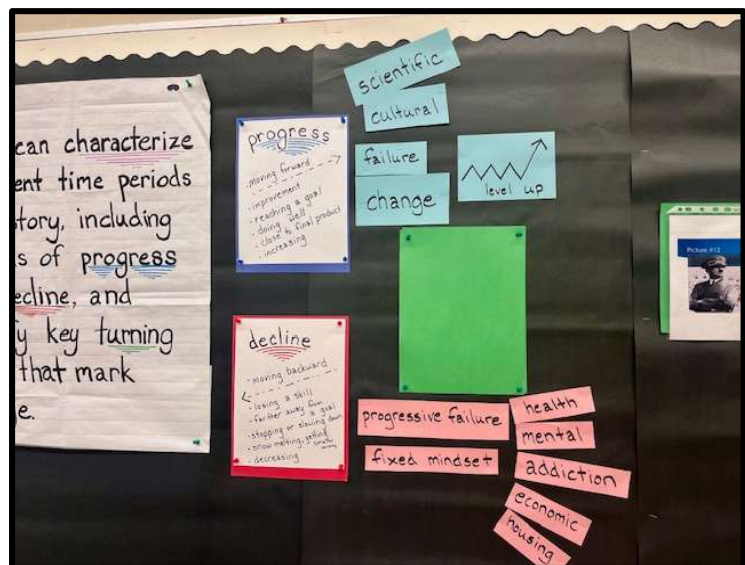 can characterize
ent time periods
tory, including
s of progress
ecline, and
y key turning
that mark
e.
progress
- moving forward
- improvement
- reaching a goal
- doing well
- close to final product
- increasing
scientific
cultural
failure
change
level up
decline
- moving backward
- losing a skill
- farther away from a goal
- stopping or slowing down
- snow melting, getting smaller
- decreasing
progressive failure
fixed mindset
health
mental
addiction
economic
housing
Picture #12